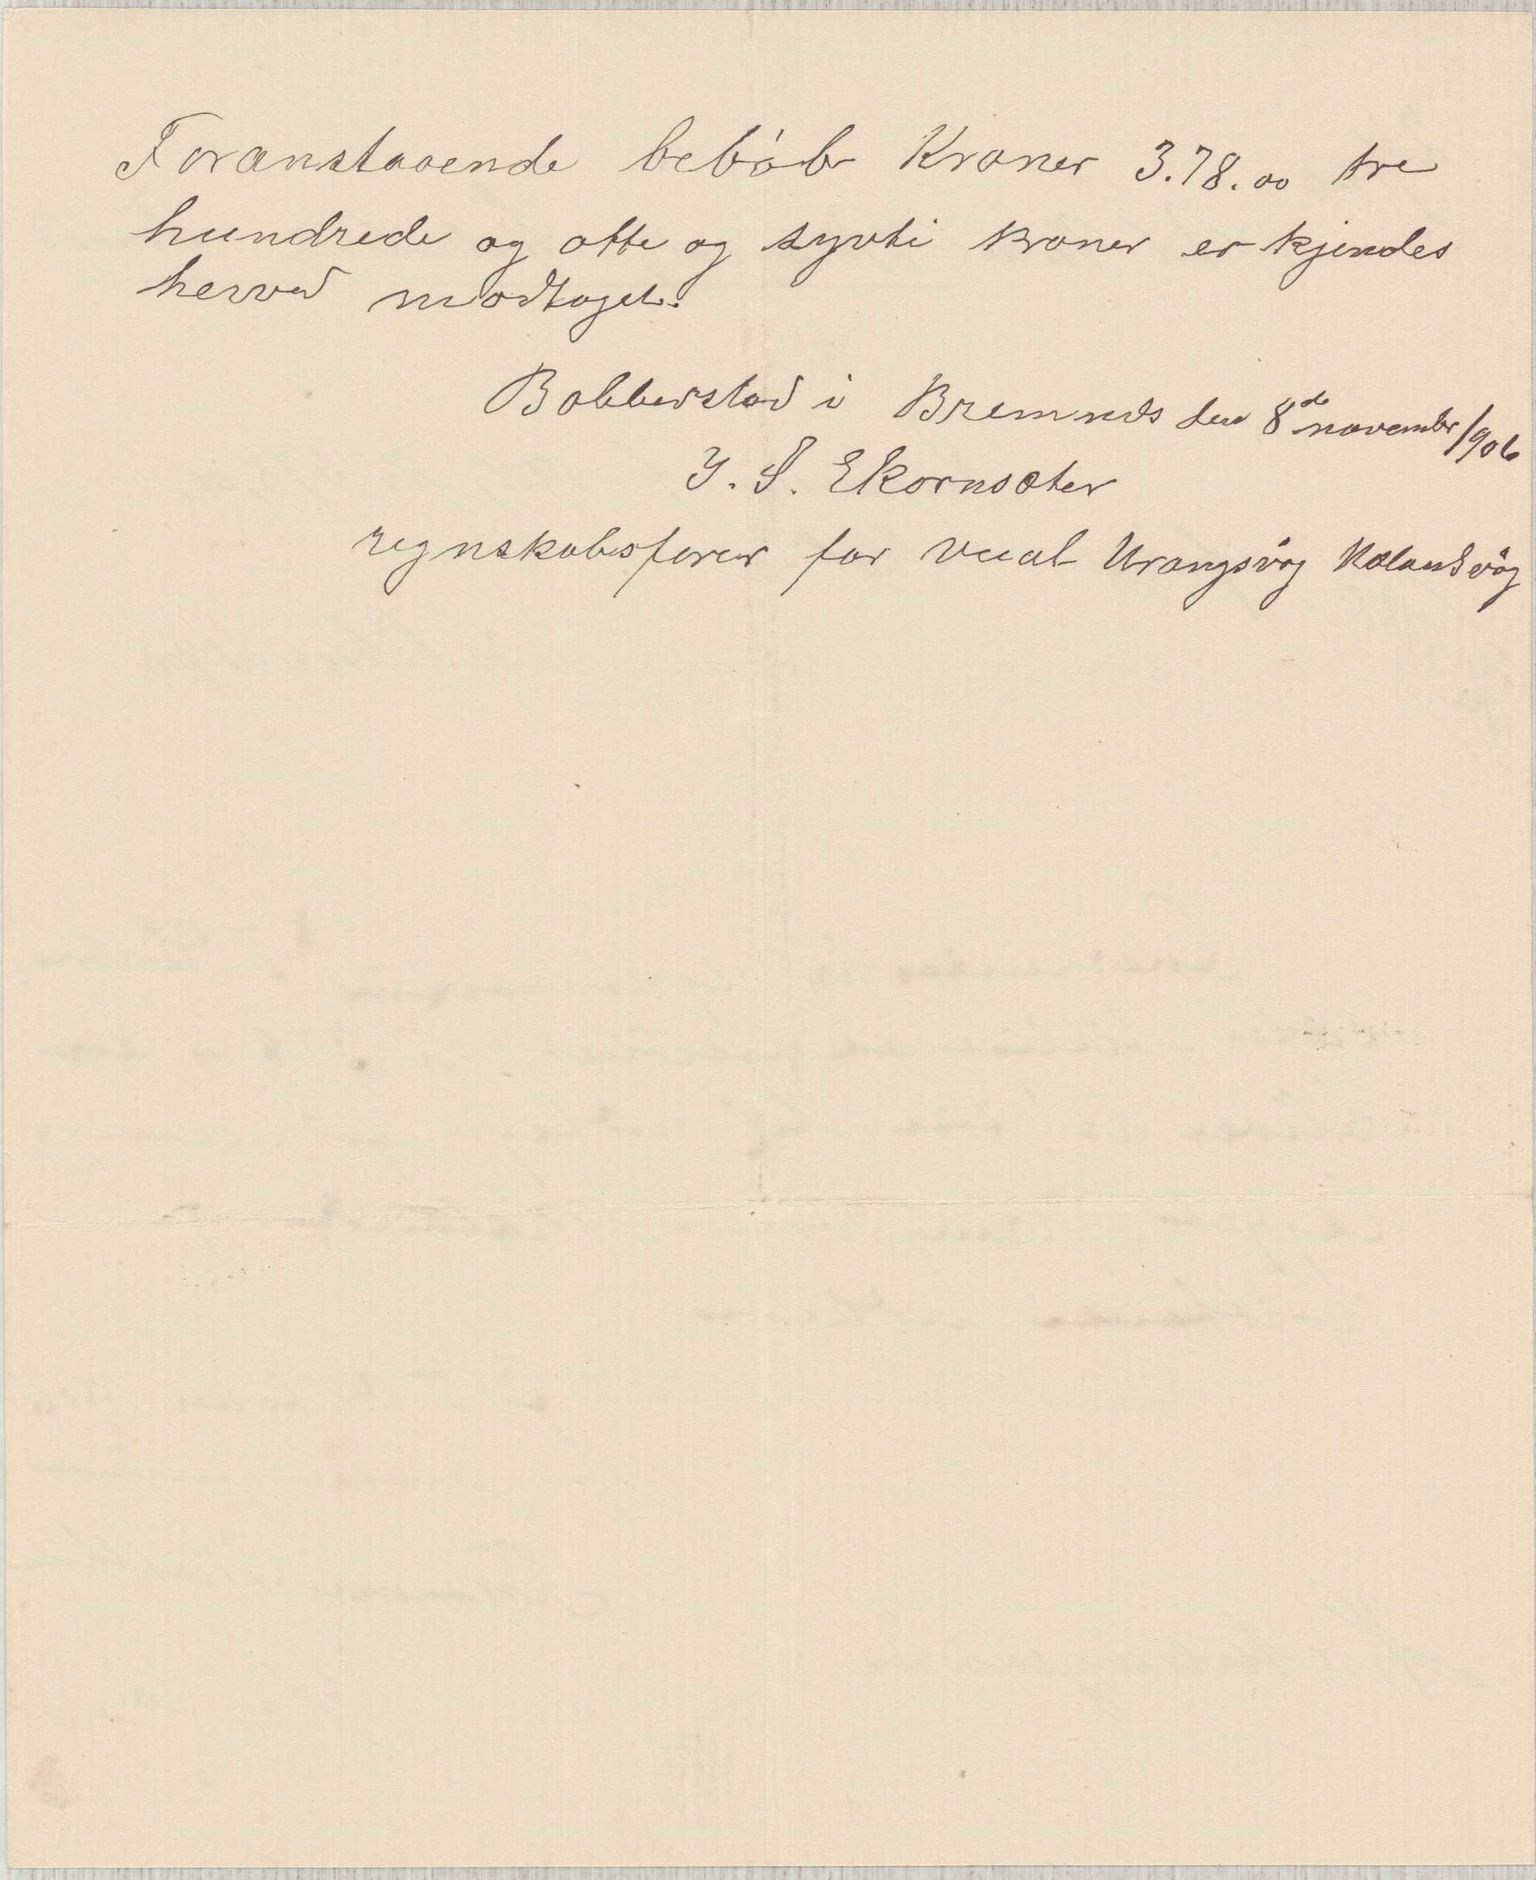 Foranstaaende beböb Kroner 3.78.00 tre
hundrede og otte og syvti kroner er kjendes
herved modtaget.
Bobberstad i Bremnes den 8de november 1906
J. S. Ekornsæter
regnskabsfører for veeal Urangsvåg